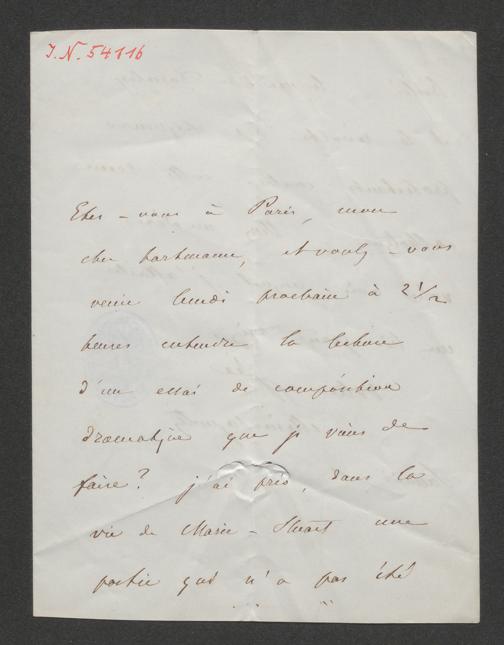 I.N. 54116
Etes-vous à Paris, mon
cher hartmann, et voulez-vous
venir lundi prochain à 2 1/2
heures entendre la lecture
d'un essai de composition
dramatique que je viens de
faire? j'ai pris, dans la
vie de Marie-Stuart une
partie qui n'a pas été